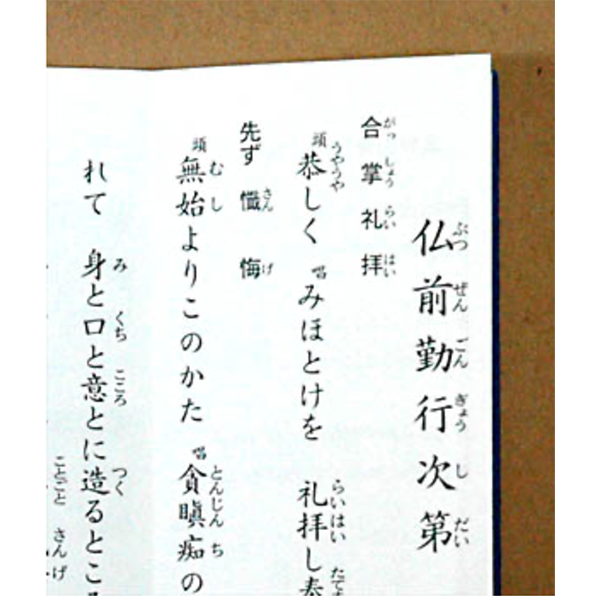 仏前勤行次第
合掌礼拝
頭 恭しく 唱 みほとけを 礼拝し奉
先ず 懺悔
頭 無始よりこのかた 唱 貪瞋痴の
れて 身と口と意とに造るところ